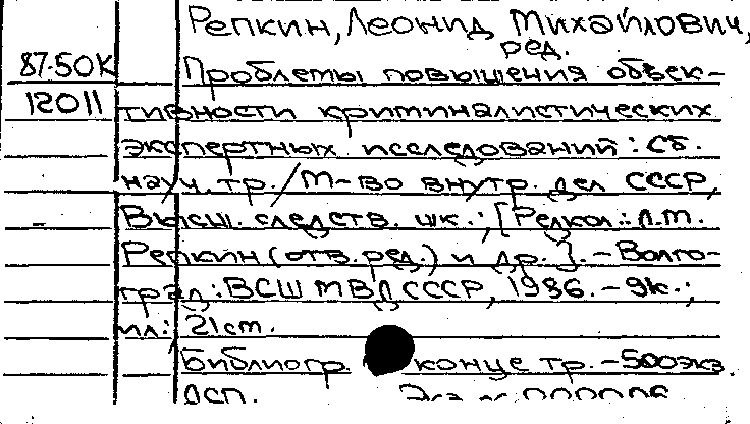 Репкин, Леонид Михайлович,
ред.
87-50К Проблемы повышения объек-
12011 тивности криминалистических
экспертных исследований: Сб.
науч. тр./М-во внутр. дел СССР,
Высш. следств. шк.; [Редкол.: Л.М.
Репкин (отв. ред.) и др.]. - Волго-
град: ВСШ МВД СССР, 1986. - 9к.;
ил.: 21 cm.
Библиогр. конце тр. - 500 экз.
Экз. №